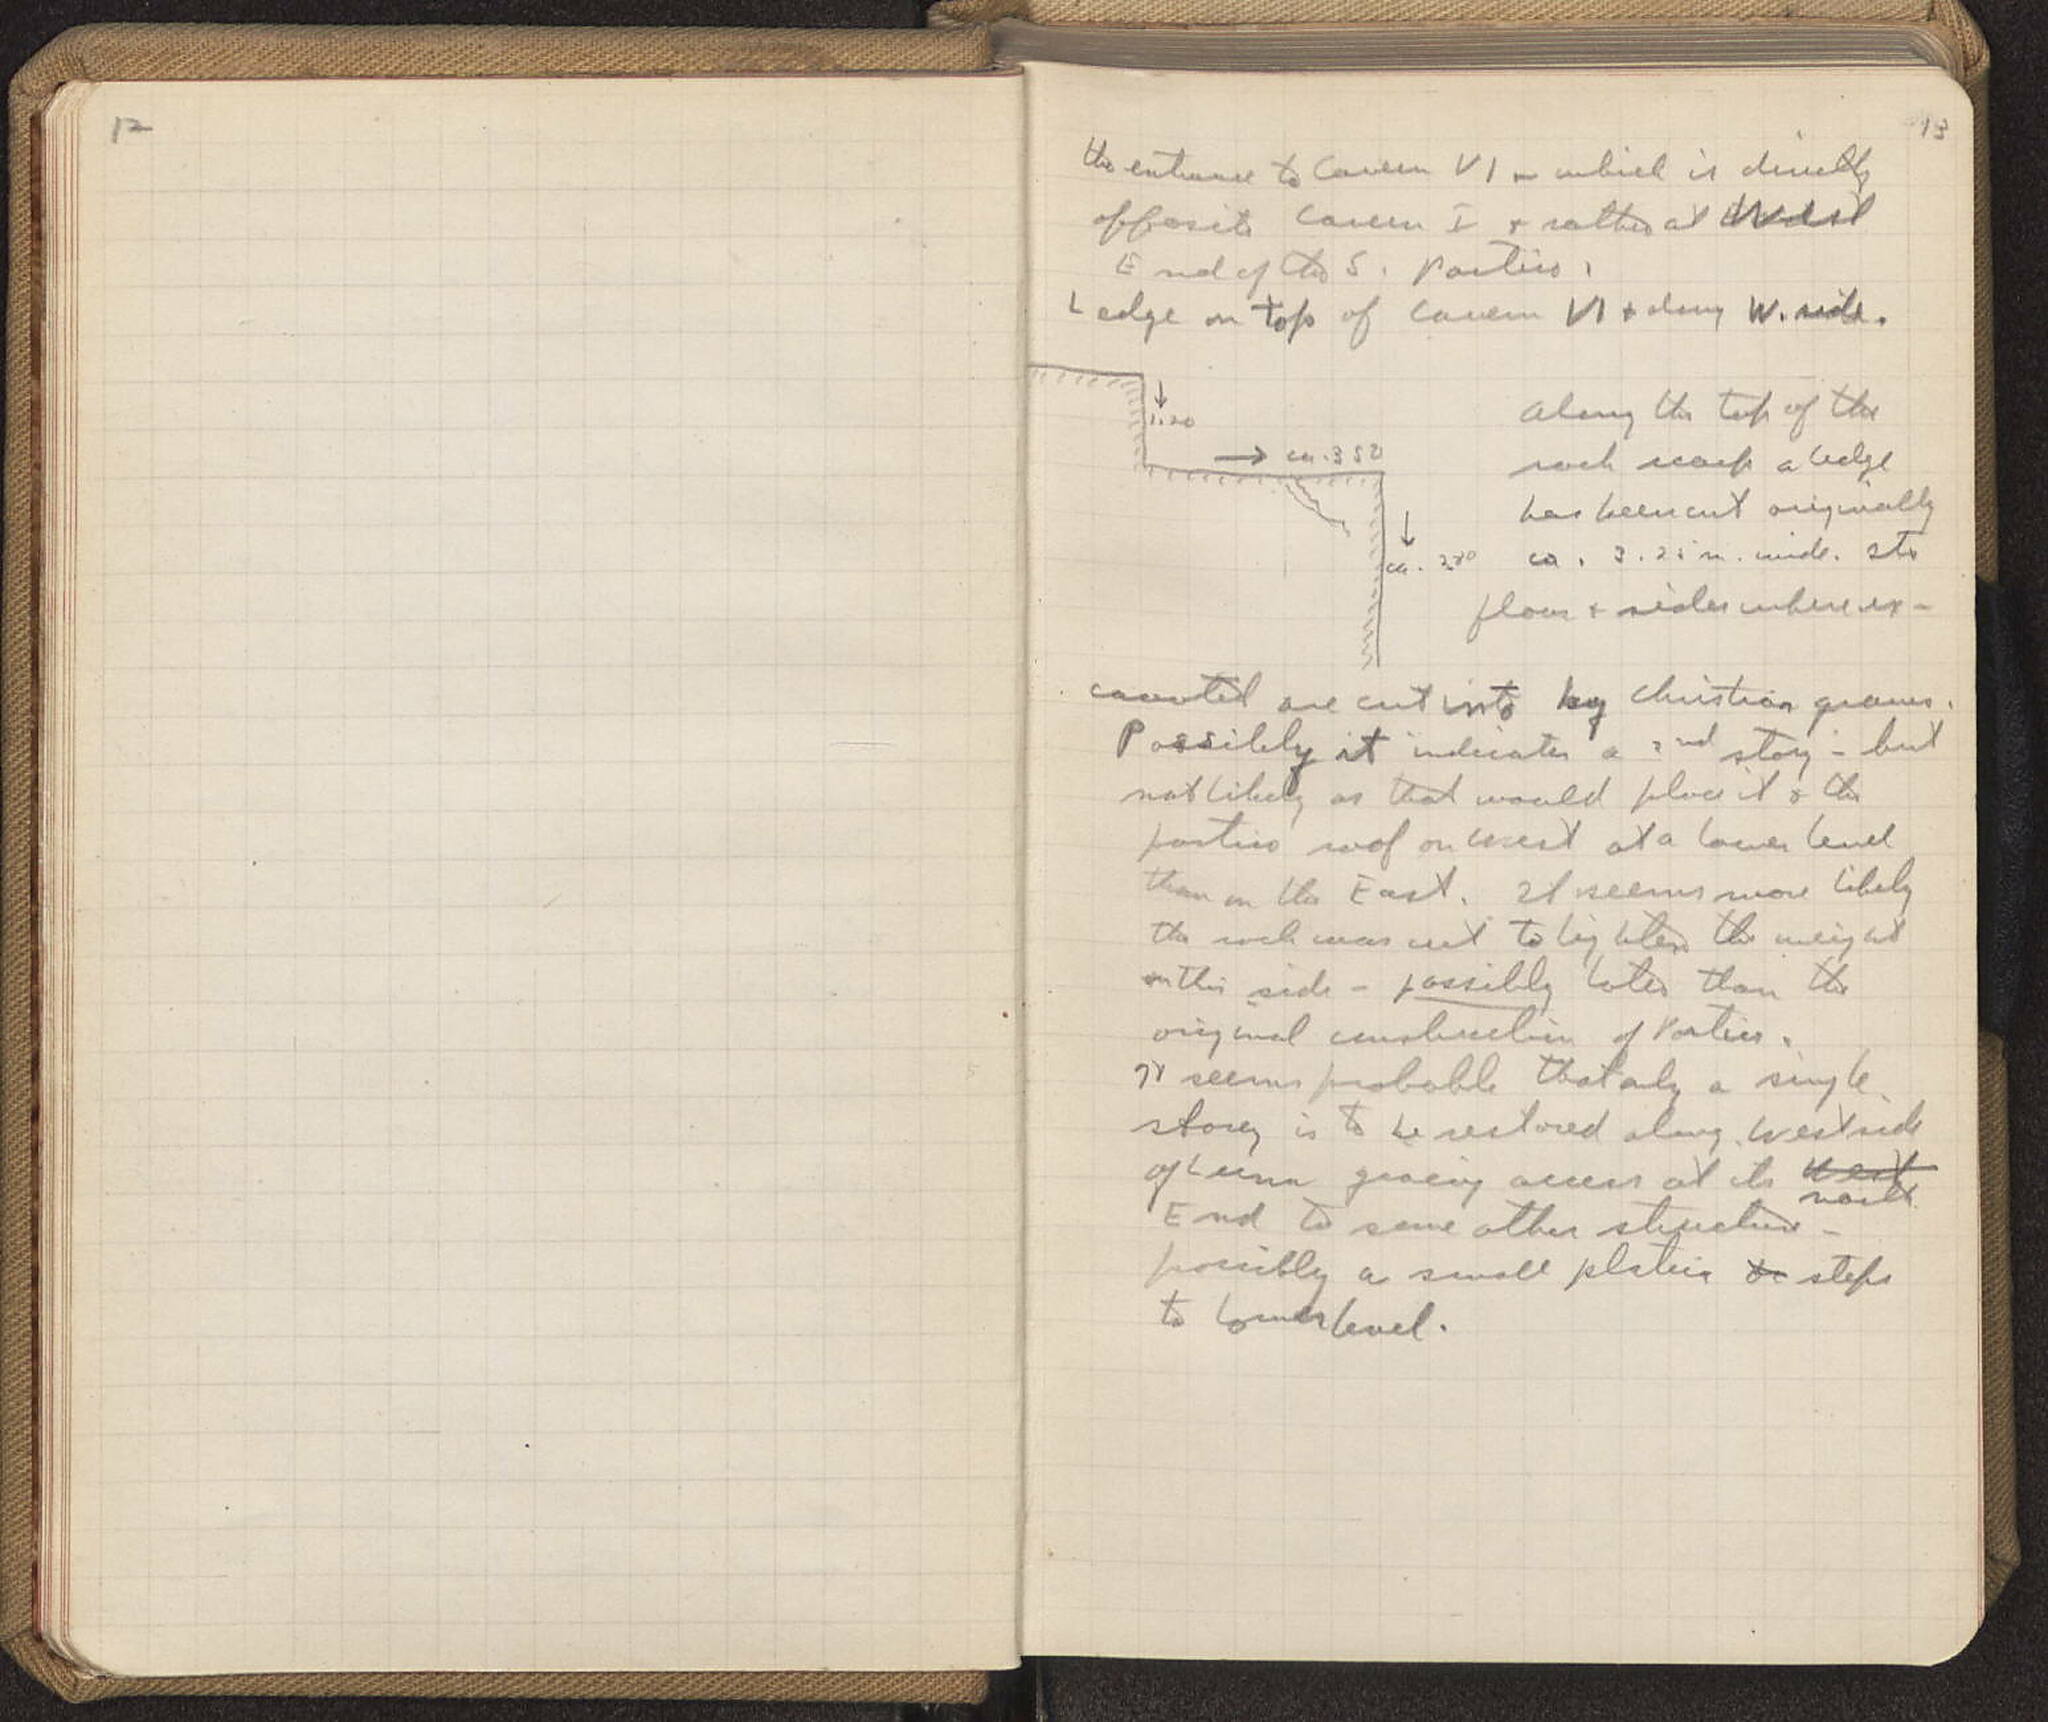 12
13
the entrance to Cavern VI – which is directly
opposite Cavern I + rather at West
End of the S. Portico.
Ledge on top of Cavern VI + along W. side.
1.20
ca. 3 50
ca.
Along the top of the
rock scarp a ledge
has been cut originally
ca. 3.25 m. wide. Its
floor + sides where ex-
cavated are cut into by Christian graves.
Possibly it indicates a 2nd story – but
not likely as that would place it + the
portico roof on West at a lower level
than on the East. It seems more likely
the rock was cut to lighten the weight
on this side – possibly later than the
original construction of Portico.
It seems probable that only a single
storey is to be restored along West side
of Lerna giving access at its West
north
End to some other structure –
possibly a small plateia or steps
to lower level.